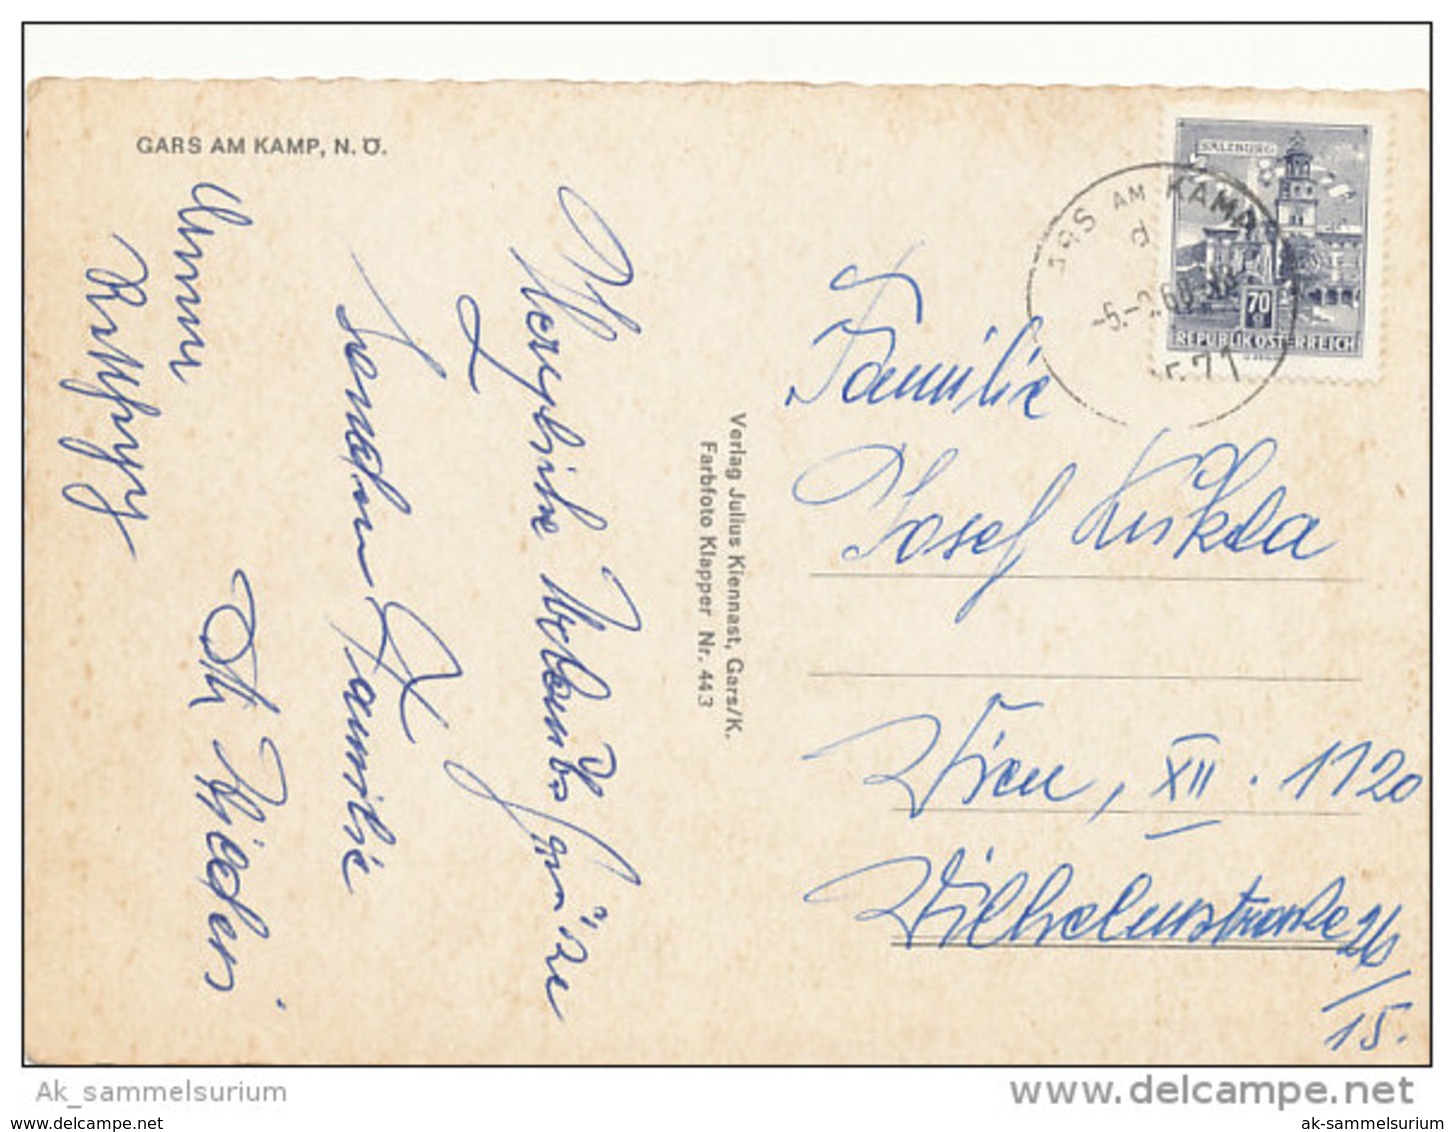 GARS AM KAMP, N. Ö.
Herzliche Urlaubs Grüße
senden Familie
Verlag Julius Kiennast, Gars/K.
Farbfoto Klapper Nr. 443
SALZBURG
70
REPUBLIK OSTERREICH
GARS AM KAMP
d
Familie
Josef Kukla
Wien, XII. 1120
Wilhelmstrasse 26/
15.
Ak_sammelsurium
www.delcampe.net
www.delcampe.net
ak-sammelsurium